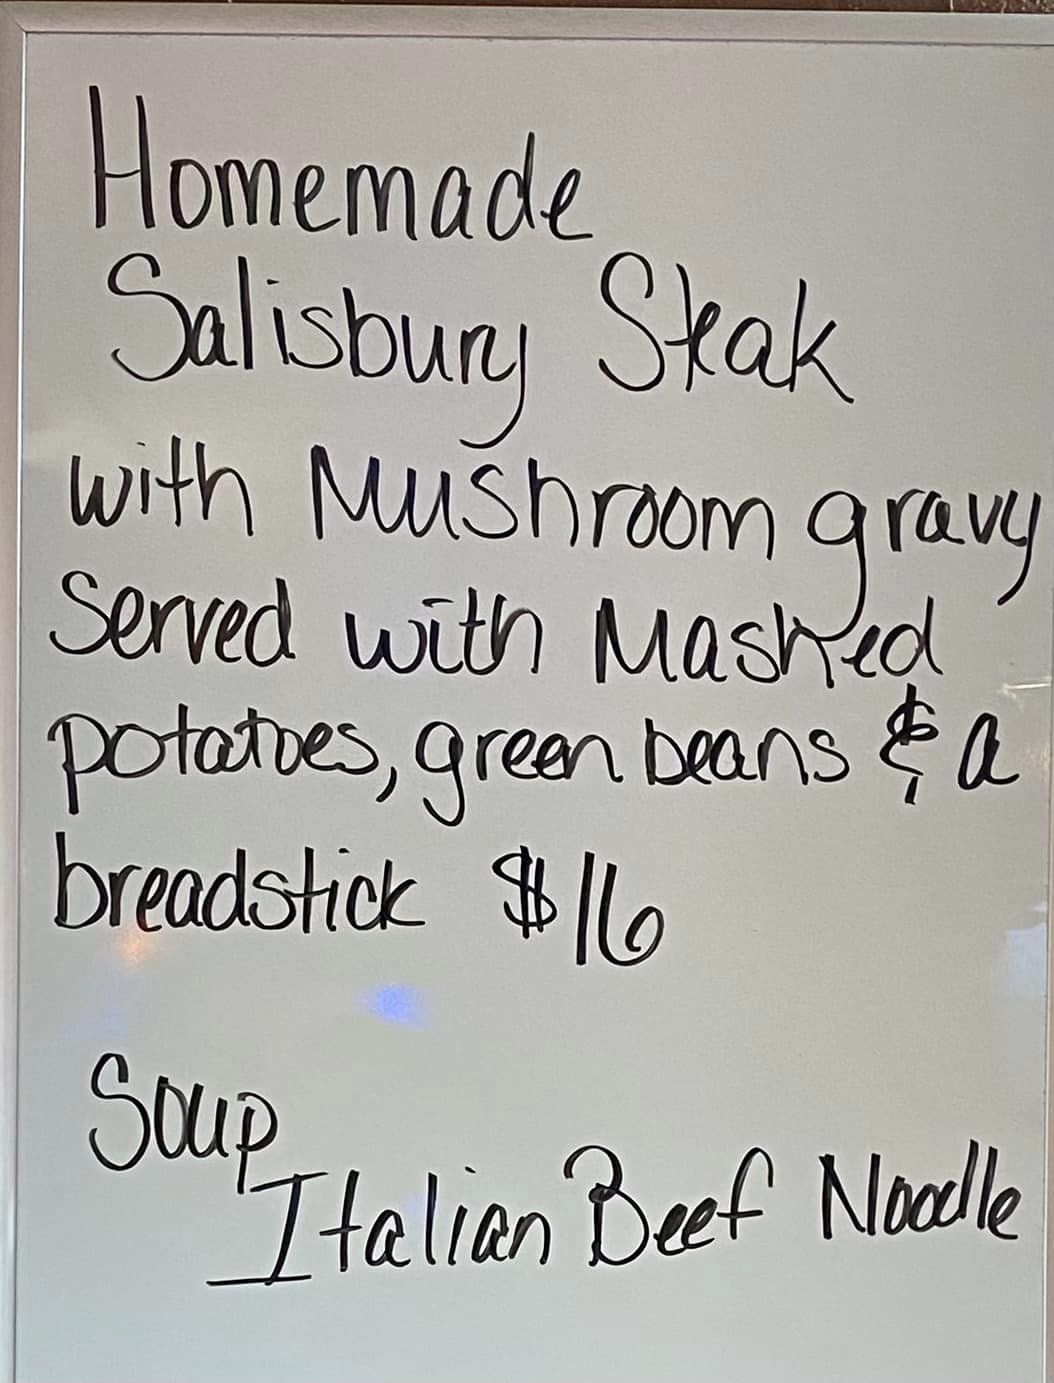 Homemade
Salisbury Steak
with Mushroom gravy
Served with Mashed
potatoes, green beans & a
breadstick $16
Soup
Italian Beef Noodle